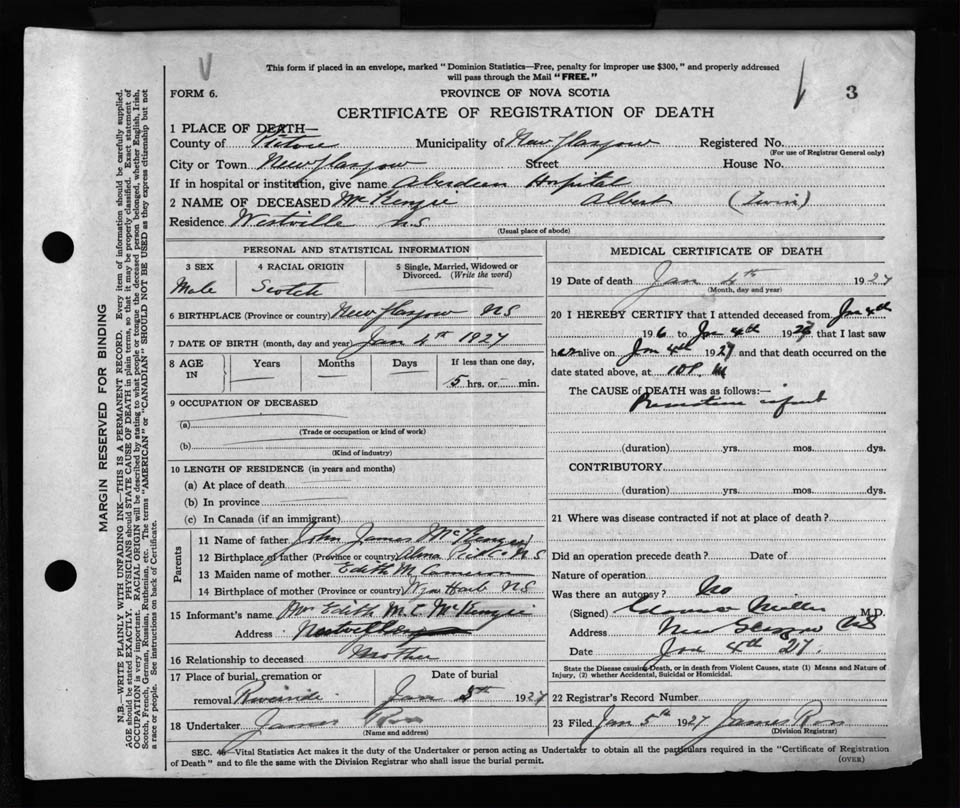 This form if placed in an envelope, marked "Dominion Statistics—Free, penalty for improper use $300," and properly addressed
will pass through the Mail "FREE."
FORM 6.
PROVINCE OF NOVA SCOTIA
3
CERTIFICATE OF REGISTRATION OF DEATH
1 PLACE OF DEATH—
County of Pictou Municipality of New Glasgow Registered No.
(For use of Registrar General only)
City or Town New Glasgow Street House No.
If in hospital or institution, give name Aberdeen Hospital
2 NAME OF DECEASED McKenzie Albert (Twin)
Residence Westville N.S
(Usual place of abode)
PERSONAL AND STATISTICAL INFORMATION
3 SEX 4 RACIAL ORIGIN 5 Single, Married, Widowed or
Divorced. (Write the word)
Male Scotch
6 BIRTHPLACE (Province or country) New Glasgow NS
7 DATE OF BIRTH (month, day and year) Jan 4th 1927
8 AGE IN Years Months Days If less than one day,
5 hrs. or min.
9 OCCUPATION OF DECEASED
(a)
(Trade or occupation or kind of work)
(b)
(Kind of industry)
10 LENGTH OF RESIDENCE (in years and months)
(a) At place of death
(b) In province
(c) In Canada (if an immigrant)
Parents
11 Name of father John James McKenzie
12 Birthplace of father (Province or country) Alma Pict Co NS
13 Maiden name of mother Edith M Cameron
14 Birthplace of mother (Province or country) NS
15 Informant's name Mr Edith M. C. McKenzie
Address
16 Relationship to deceased Mother
17 Place of burial, cremation or Date of burial
removal Riverside Jan 5th 1927
18 Undertaker James Ross
(Name and address)
MEDICAL CERTIFICATE OF DEATH
19 Date of death Jan 4th 1927
(Month, day and year)
20 I HEREBY CERTIFY that I attended deceased from Jan 4th
196 to Jan 4th 1927 that I last saw
h alive on Jan 4th 1927 and that death occurred on
date stated above, at 10 P. M
The CAUSE of DEATH was as follows:—
Premature infant
(duration) yrs. mos. dys.
CONTRIBUTORY
(duration) yrs. mos. dys.
21 Where was disease contracted if not at place of death?
Did an operation precede death? Date of
Nature of operation
Was there an autopsy? No
(Signed) Clarence Miller M.D.
Address New Glasgow NS
Date Jan 4th 27.
State the Disease causing Death, or in death from Violent Causes, state (1) Means and Nature of
Injury, (2) whether Accidental, Suicidal or Homicidal.
22 Registrar's Record Number
23 Filed Jan 5th 1927 James Ross
(Division Registrar)
SEC. Vital Statistics Act makes it the duty of the Undertaker or person acting as Undertaker to obtain all the particulars required in the "Certificate of Registration
of Death" and to file the same with the Division Registrar who shall issue the burial permit.
(OVER)
MARGIN RESERVED FOR BINDING
N.B.—WRITE PLAINLY WITH UNFADING INK—THIS IS A PERMANENT RECORD. Every item of information should be carefully supplied.
AGE should be stated EXACTLY. PHYSICIANS should STATE CAUSE OF DEATH in plain terms, so that it may be properly classified. Exact statement of
OCCUPATION is very important. RACIAL ORIGIN will be described by stating to what people or tongue the deceased person belonged, whether English, Irish,
Scotch, French, German, Russian, Ruthenian, etc. The terms "AMERICAN" or "CANADIAN" SHOULD NOT BE USED as they express citizenship but not
a race or people. See instructions on back of Certificate.